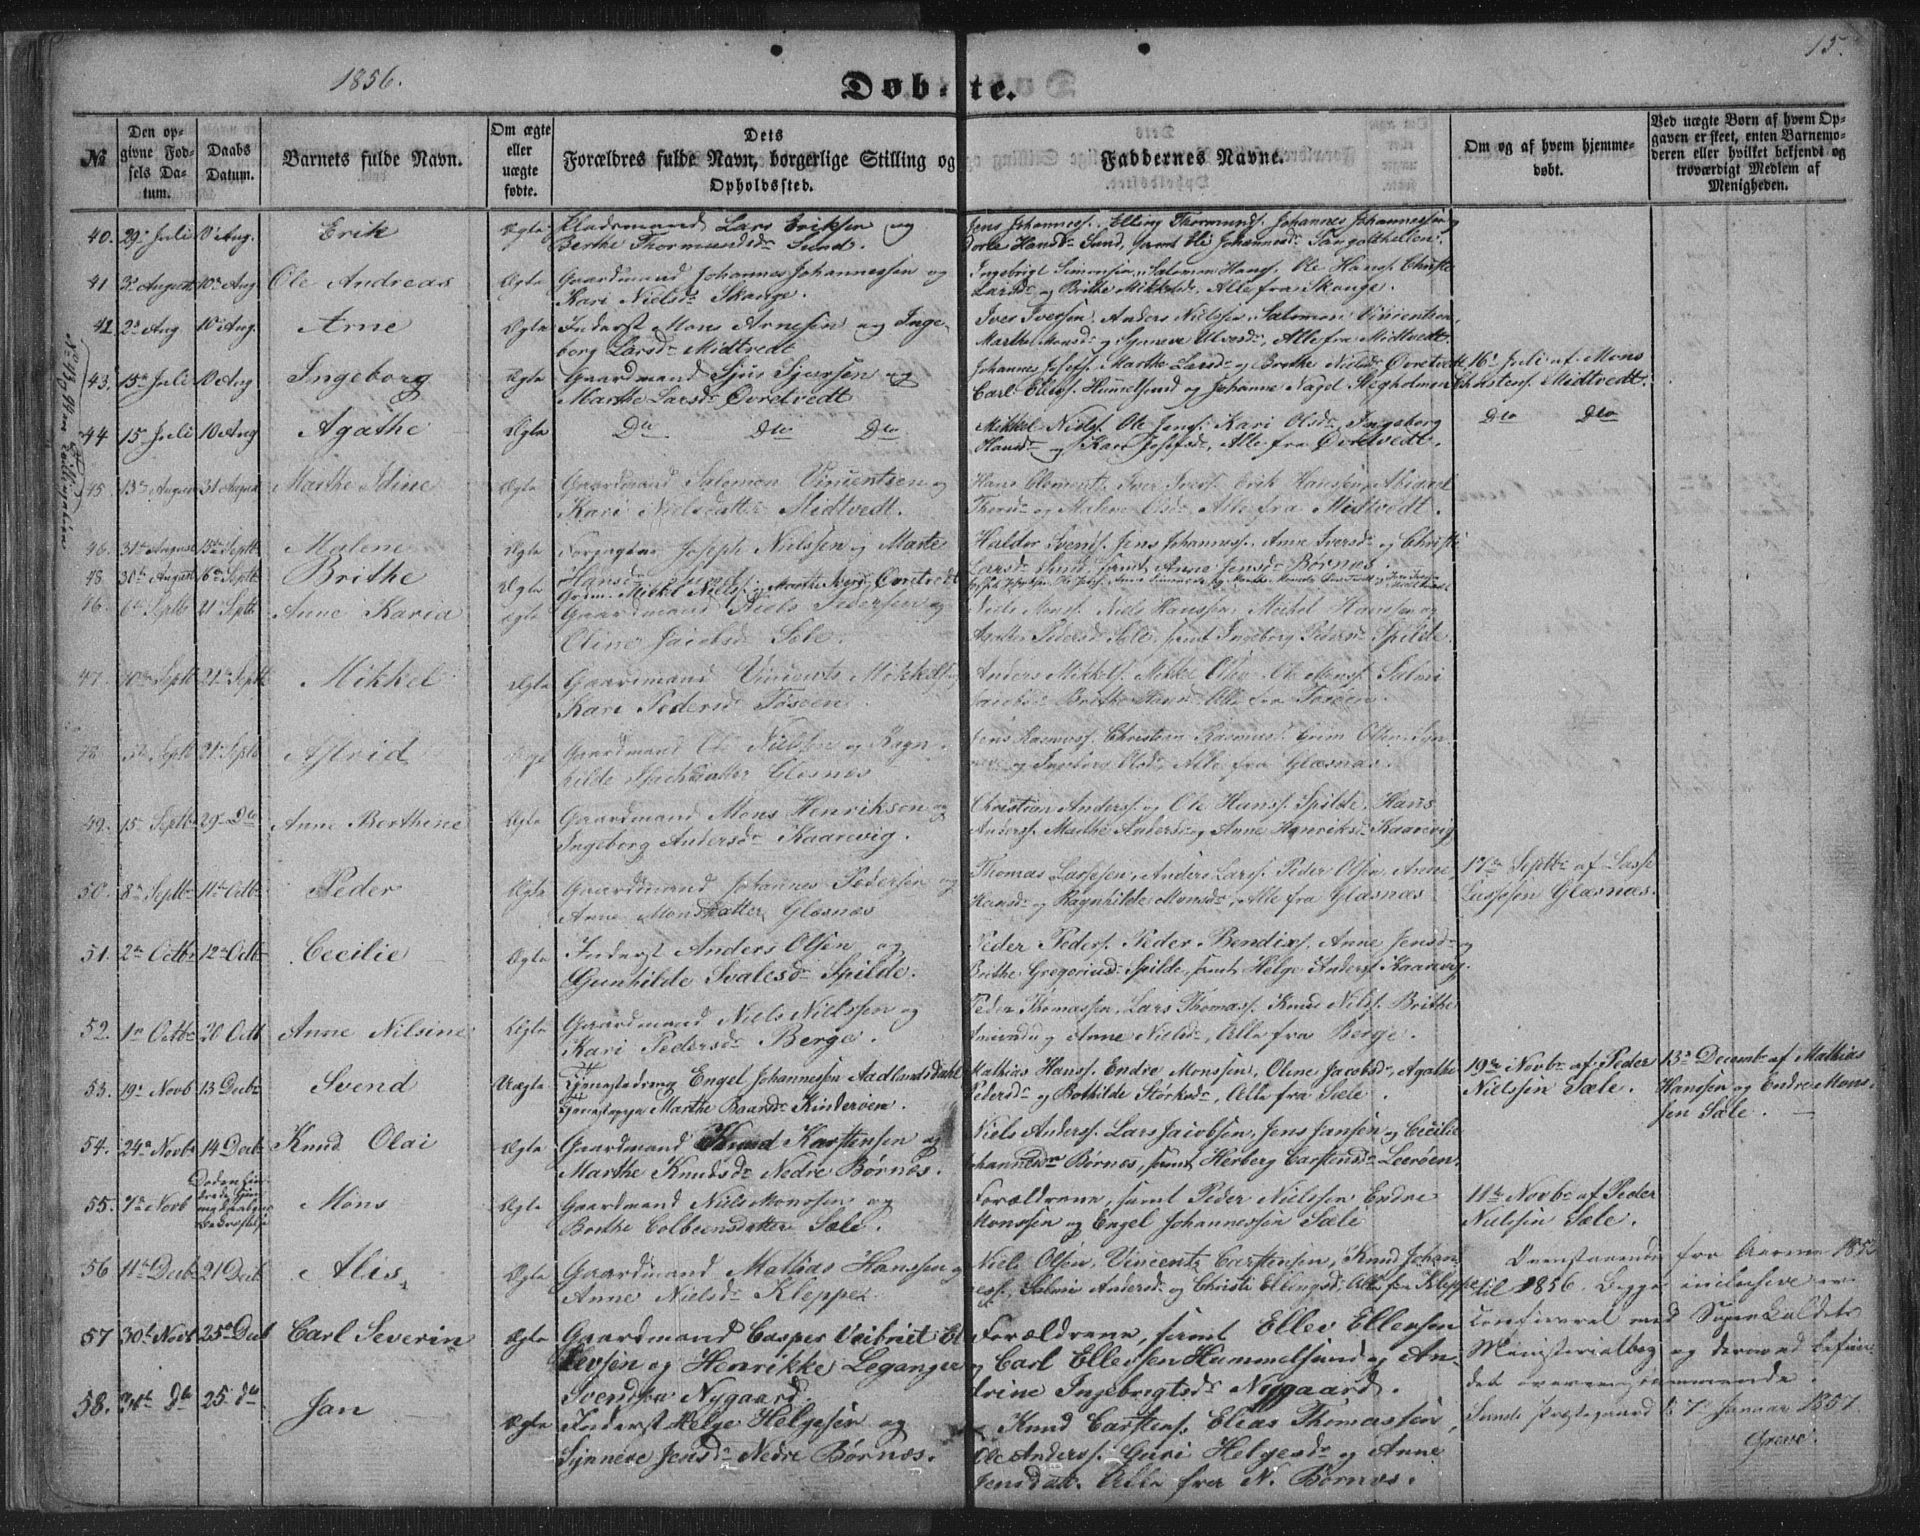 1856.
Døbte.
15.
No
Den opgivne Fødsels Datum.
Daabs Datum.
Barnets fulde Navn.
Om ægte eller uægte fødte.
Dets Forældres fulde Navn, borgerlige Stilling og Opholdssted.
Faddernes Navne.
Om og af hvem hjemmedøbt.
Ved uægte Børn af hvem Opgaven er skeet, enten Barnemoderen eller hvilket bekjendt og troværdigt Medlem af Menigheden.
40. 29 Juli Aug. Erik Ægte Pladsmand Lars Eriksen og
Berthe Thormundsdr Sund.
Jens Johanness. Elling Thormunds. Johannes Johannessen og
Dorte Hansdr Sund, samt Eli Johannesdr
41 August 10 Aug Ole Andreas Ægte Gaardmand Johannes Johannessen og
Kari Nielsdr Skauge.
Ingebrigt Simonsen, Salomon Hans. Ole Hans. Christi
Larsdr og Brithe Mikkelsdr, Alle fra Skauge.
42 2 Aug 10 Aug. Arne Ægte Inderst Mons Arnesen og Inge-
borg Larsdr Midtvedt
Iver Iversen, Anders Nielsen, Salomon Vincentsen,
Marthe Monsdr og Synneve Alle fra Midtvedt.
43. 15 Juli 10 Aug Ingeborg Ægte Gaardmand Sjur Sjursen og
Marthe Larsdr Øvretvedt
Johannes Josefs. Marthe Larsdr og Brithe Nielsdr Øvretvedt
Carl Ellevs. Hummelsund og Johanne Nagel Stegholmen
16 Juli af Mons
Christens. Midtvedt.
44 15 Juli 10 Aug Agathe Ægte Dto Dto Dto
Mikkel Niels. Ole Jens. Kari Olsdr, Ingeborg
Hansdr og Kari Josefsdr, Alle fra Øvretvedt.
Dto Dto
45 13 August 31 August Marthe Idine Ægte Gaardmand Salomon Vincentsen og
Kari Nielsdatter Midtvedt.
Hans Clements. Iver Ivers. Erik Hanssen, Abidael
Thorsdr og Malene Olsdr, Alle fra Midtvedt.
46 31 August Septb Malene Ægte Forpagter Joseph Nielssen og Marte
Hansdr
Haldor Svends. Jens Johanness. Anne Iversdr og Christi
Larsdr Sund, samt Anne Jensdr Børnæs.
48 30 August Septb Brithe Ægte Gaardm. Mikkel Niels. og Marthe Iversdr Øvretvedt
46 6 Septb 21 Septb Anne Karia Ægte Gaardmand Niels Pedersen og
Oline Jacobsdr Sele.
Niels Mons. Niels Hanssen, Michel Hanssen og
Pedersdr Sele, samt Ingeborg Pedersdr Spilde.
47. Septb 21 Septb Mikkel Ægte Gaardmand Vincents Mikkels. og
Kari Pedersdr Toføen.
Anders Mikkels. Mikkel Ols. Ole Mons. Salmi
Jacobsdr Brithe Alle fra Toføen.
48 Septb 21 Septb Astrid Ægte Gaardmand Ole Nielsen og Ragn-
hilde Glesnæs
Jens Rasmuss. Christian Rasmuss. Olsen
og Ingeborg Olsdr, Alle fra Glæsnæs.
49. 15 Septb 29 Dto Anne Berthine Ægte Gaardmand Mons Henriksen og
Ingeborg Andersdr Kaarevig.
Christian Anders. og Ole Hans. Spilde. Hans
Anders. Marthe Andersdr og Anne Henriksdr Kaarevig
50. 8 Septb 11 Octb Peder Ægte Gaardmand Johannes Pedersen og
Anne Monsdatter Glesnæs
Thomas Larssen, Anders Lars. Peder Olsen, Anne
Hansdr og Ragnhilde Monsdr, Alle fra Glæsnæs
17 Septb af Lasse
Lassesen Glæsnæs.
51. 2 Octb 12 Octb Cecilie Ægte Inderst Anders Olsen og
Gunhilde Svalesdr Spilde.
Peder Peders. Peder Bendixs. Anne Jensdr og
Brithe Gregoriusdr Spilde, samt Helge Anders. Kaarevig.
52. 1 Octb 20 Octb Anne Nilsine Ægte Gaardmand Niels Nielssen og
Kari Pedersdr Berge.
Peder Thomassen, Lars Thomass. Knud Niels. Brithe
og Anne Nielsdr, Alle fra Berge.
53. 19 Novb 13 Decbr Svend Uægte Tjenestedreng Engel Johannessen Aadlandsdahl
Tjenestepige Marthe Baardsdr Kinderøen.
Mathias Hans. Endre Monssen, Oline Jacobsdr, Agathe
Pedersdr og Bothilde Størksdr, Alle fra Sæle.
19 Novbr af Peder
Nielsen Sæle.
13 Decemb af Mathias
Hanssen og Endre Mons-
sen Sæle.
54. 24 Novb 14 Decb Knud Olai Ægte Gaardmand Knud Karstensen og
Marthe Knudsdr Nedre Børnæs.
Niels Anders. Lars Jacobsen, Jens Jansen og Cecilie
Johannesdr Børnæs, samt Herborg Carstensdr Leerøen.
55. 7 Novb Mons Ægte Gaardmand Niels Monssen og
Brithe Colbeensdatter Sæle.
Forældrene, samt Peder Nielssen Endre
Monssen og Engel Johannessen Sæle
11 Novbr af Peder
Nielssen Sæle.
56 11 Decb 21 Decb Alis Ægte Gaardmand Mathias Hanssen og
Anne Nielsdr Kleppe
Niels Olsen, Vincents Carstensen, Knud Johan-
ness. Salmi Andersdr og Christi Ellingsdr, Alle fra Kleppe
57 30 Novb 25 Decb Carl Severin Ægte Gaardmand Casper Vribriet El-
levsen og Henrikke Leganger
Svendsen Nygaard.
Forældrene, samt Ellev Ellevsen
og Carl Ellevsen Hummelsund og An-
drine Ingebrigtsdr Nygaard.
58. Dto 25 Dto Jan Ægte Inderst Helge Helgesen og
Synneve Jensdr Nedre Børnæs.
Knud Carstens. Elias Thomassen,
Ole Anders. Guri Helgesdr og Anne
Jensdatt. Alle fra N. Børnæs.
Ovenstaaende fra Aarene
til 1856. Begge inclusive er
confereret med Sognekaldets
Ministerialbog og derved befun-
det overensstemmende.
Sunds Præstegaard 7 Januar 1857.
Greve.